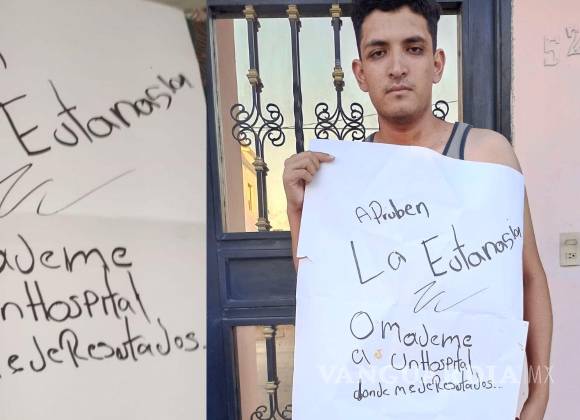 Eutanasia
ademe
nHospital
e deResutados..
52
APruben
La Eutanasia
O mademe
a UnHospital
donde me deResutados...
VANGUARDIA MX